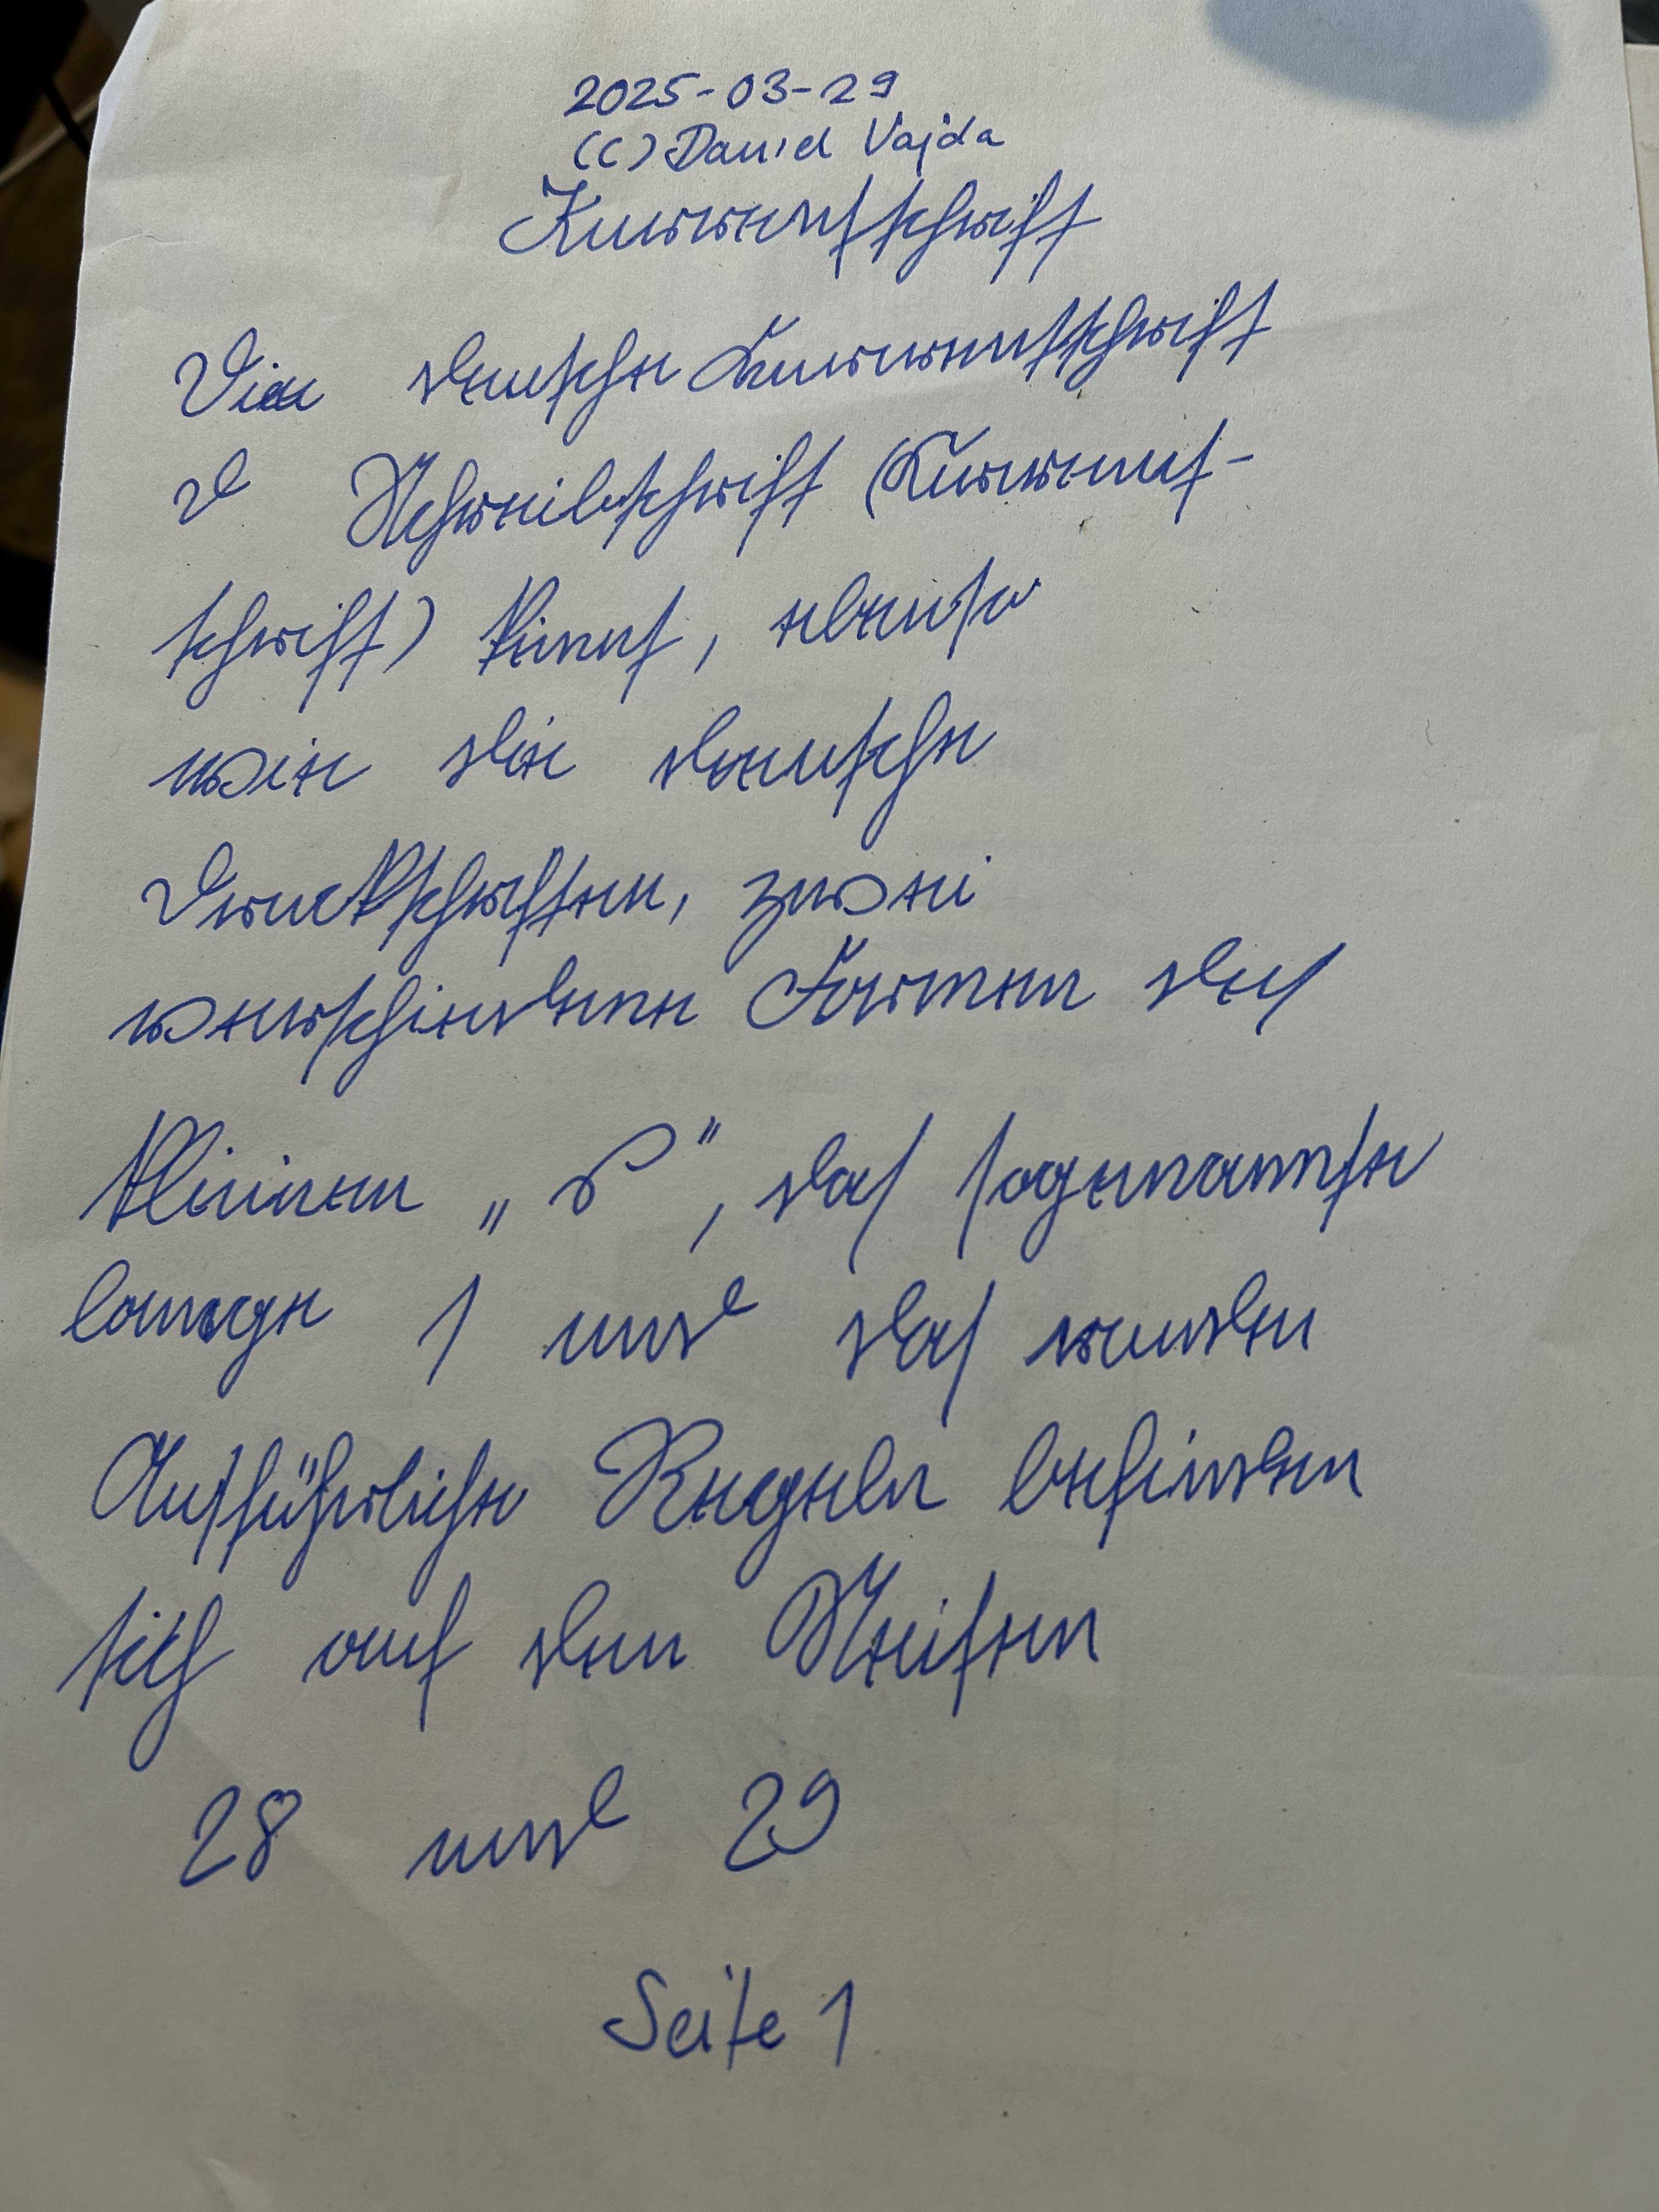 2025-03-29
(C) David Vajda
Kurrentschrift
Die deutsche Kurrentschrift
D Schreibschrift (Kurrent-
schrift) kennt, ebenso
wie die deutsche
Druckschriften, zwei
verschiedene Formen des
kleinen „s“, das sogenannte
lange ſ und das runden
Ausführliche Regeln befinden
sich auf den Seiten
28 und 29
Seite 1